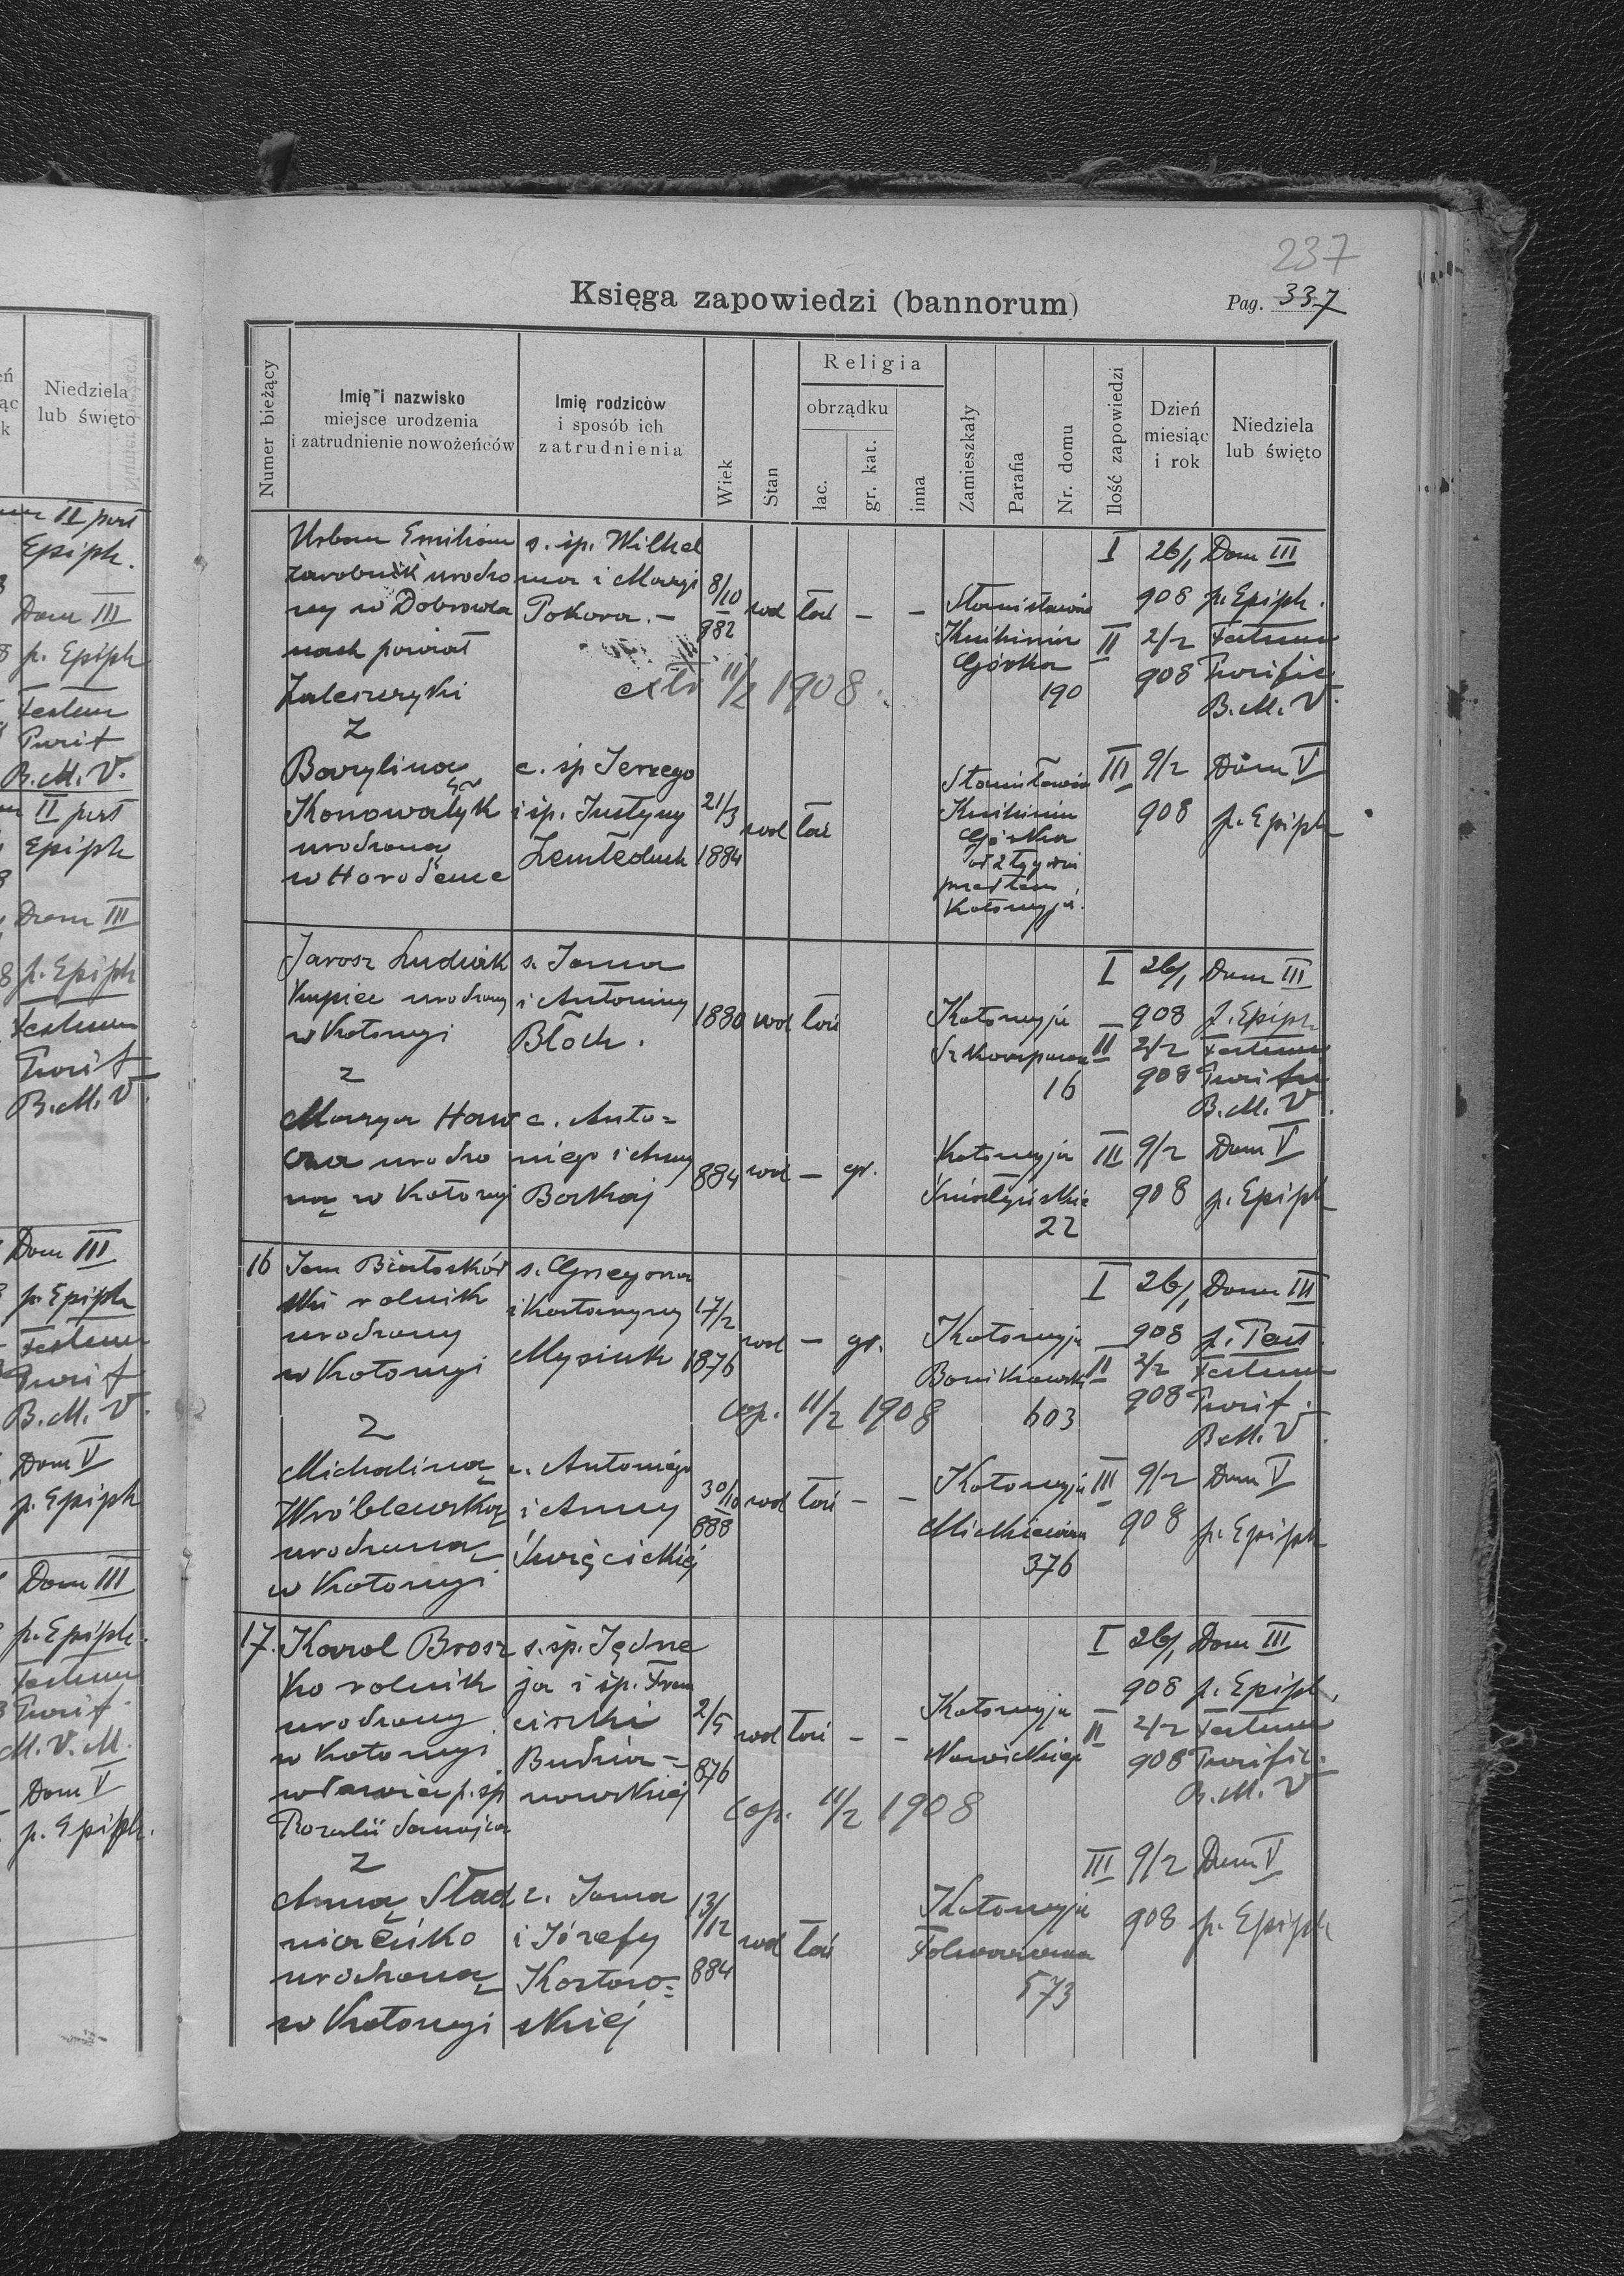 237
Księga zapowiedzi (bannorum)
Pag. 337
Numer bieżący
Imię i nazwisko
miejsce urodzenia
i zatrudnienie nowożeńców
Imię rodziców
i sposób ich
zatrudnienia
Wiek
Stan
Religia
obrządku
łac.
gr. kat.
inna
Zamieszkały
Parafia
Nr. domu
Ilość zapowiedzi
Dzień
miesiąc
i rok
Niedziela
lub święto
Urban Emilian s. śp. Wilhel I 26/1 Dom III
zarobnik urodzo ma i Maryi 8/10 Stanisławów 908 p. Epiph.
ny w Dobrowla Pokora. – 882 wol łać – –
nach powiat Knihinin II 2/2 Festum
Górka 908 Purific
Zaleszczyki 11/2 1908 190 B. M. V.
z
Barylina c. śp Jerzego Stanisławów III 9/2 Dom V
Konowałyk i śp. Justyny 21/3 wol łać Knihinin 908 p. Epiph
urodzoną Zemłeduch 1884 Górka
w Horodence
przedtem
Kołomyja.
Jarosz Ludwik s. Jana I 26/1 Dom III
kupiec urodzony i Antoniny 1880 wol łać Kołomyja 908 p. Epiph
w Kołomyi Błoch. II 2/2 Festum
z 16 908 Purif
B. M. V.
Marya Haw c. Anto=
urodzo niego i Anny 884 wol – gr. Kołomyja III 9/2 Dom V
ną w Kołomyi 908 p. Epiph
22
16 Jan Białoskór s. Grzegorza I 26/1 Dom III
ski rolnik i Katarzyny 17/2 Kołomyja 908 p.
urodzony Mysiuk 1876 wol – gr. II 2/2 Festum
w Kołomyi cop. 11/2 1908 603 908 Purif.
z B. M. V.
Michaliną c. Antoniego Kołomyja III 9/2 Dom V
Wróblewską i Anny 30/10 888 wol łać – – Mickiewicza 908 p. Epiph
urodzoną Święcickiej 376
w Kołomyi
17. Karol Brosz s. śp. Jędrze I 26/1 Dom III
ko rolnik ja i śp. Fran 908 p. Epiph.
urodzony ciszki 2/5 Kołomyja II 2/2 Festum
w Kołomyi Budzia – 876 wol łać – – Nowickiego 908 Purific.
wdowiec p. śp nowskiej cop. 11/2 1908 B. M. V
Rozalii
z III 9/2 Dom V
Anną Stad c. Jana 13/12 Kołomyja 908 p. Epiph
niczeńko i Józefy wol łać
urodzoną 884 573
w Kołomyi skiej
Niedziela
lub święto
Epiph.
Dom III
p. Epiph
Festum
Purif
B. M. V.
II post
Epiph
Dom III
p. Epiph
Festum
Purif
B. M. V.
Dom III
p. Epiph
Festum
Purif
B. M. V.
Dom V
p. Epiph
Dom III
p. Epiph.
Festum
Purif
M. V. M.
Dom V
p. Epiph.